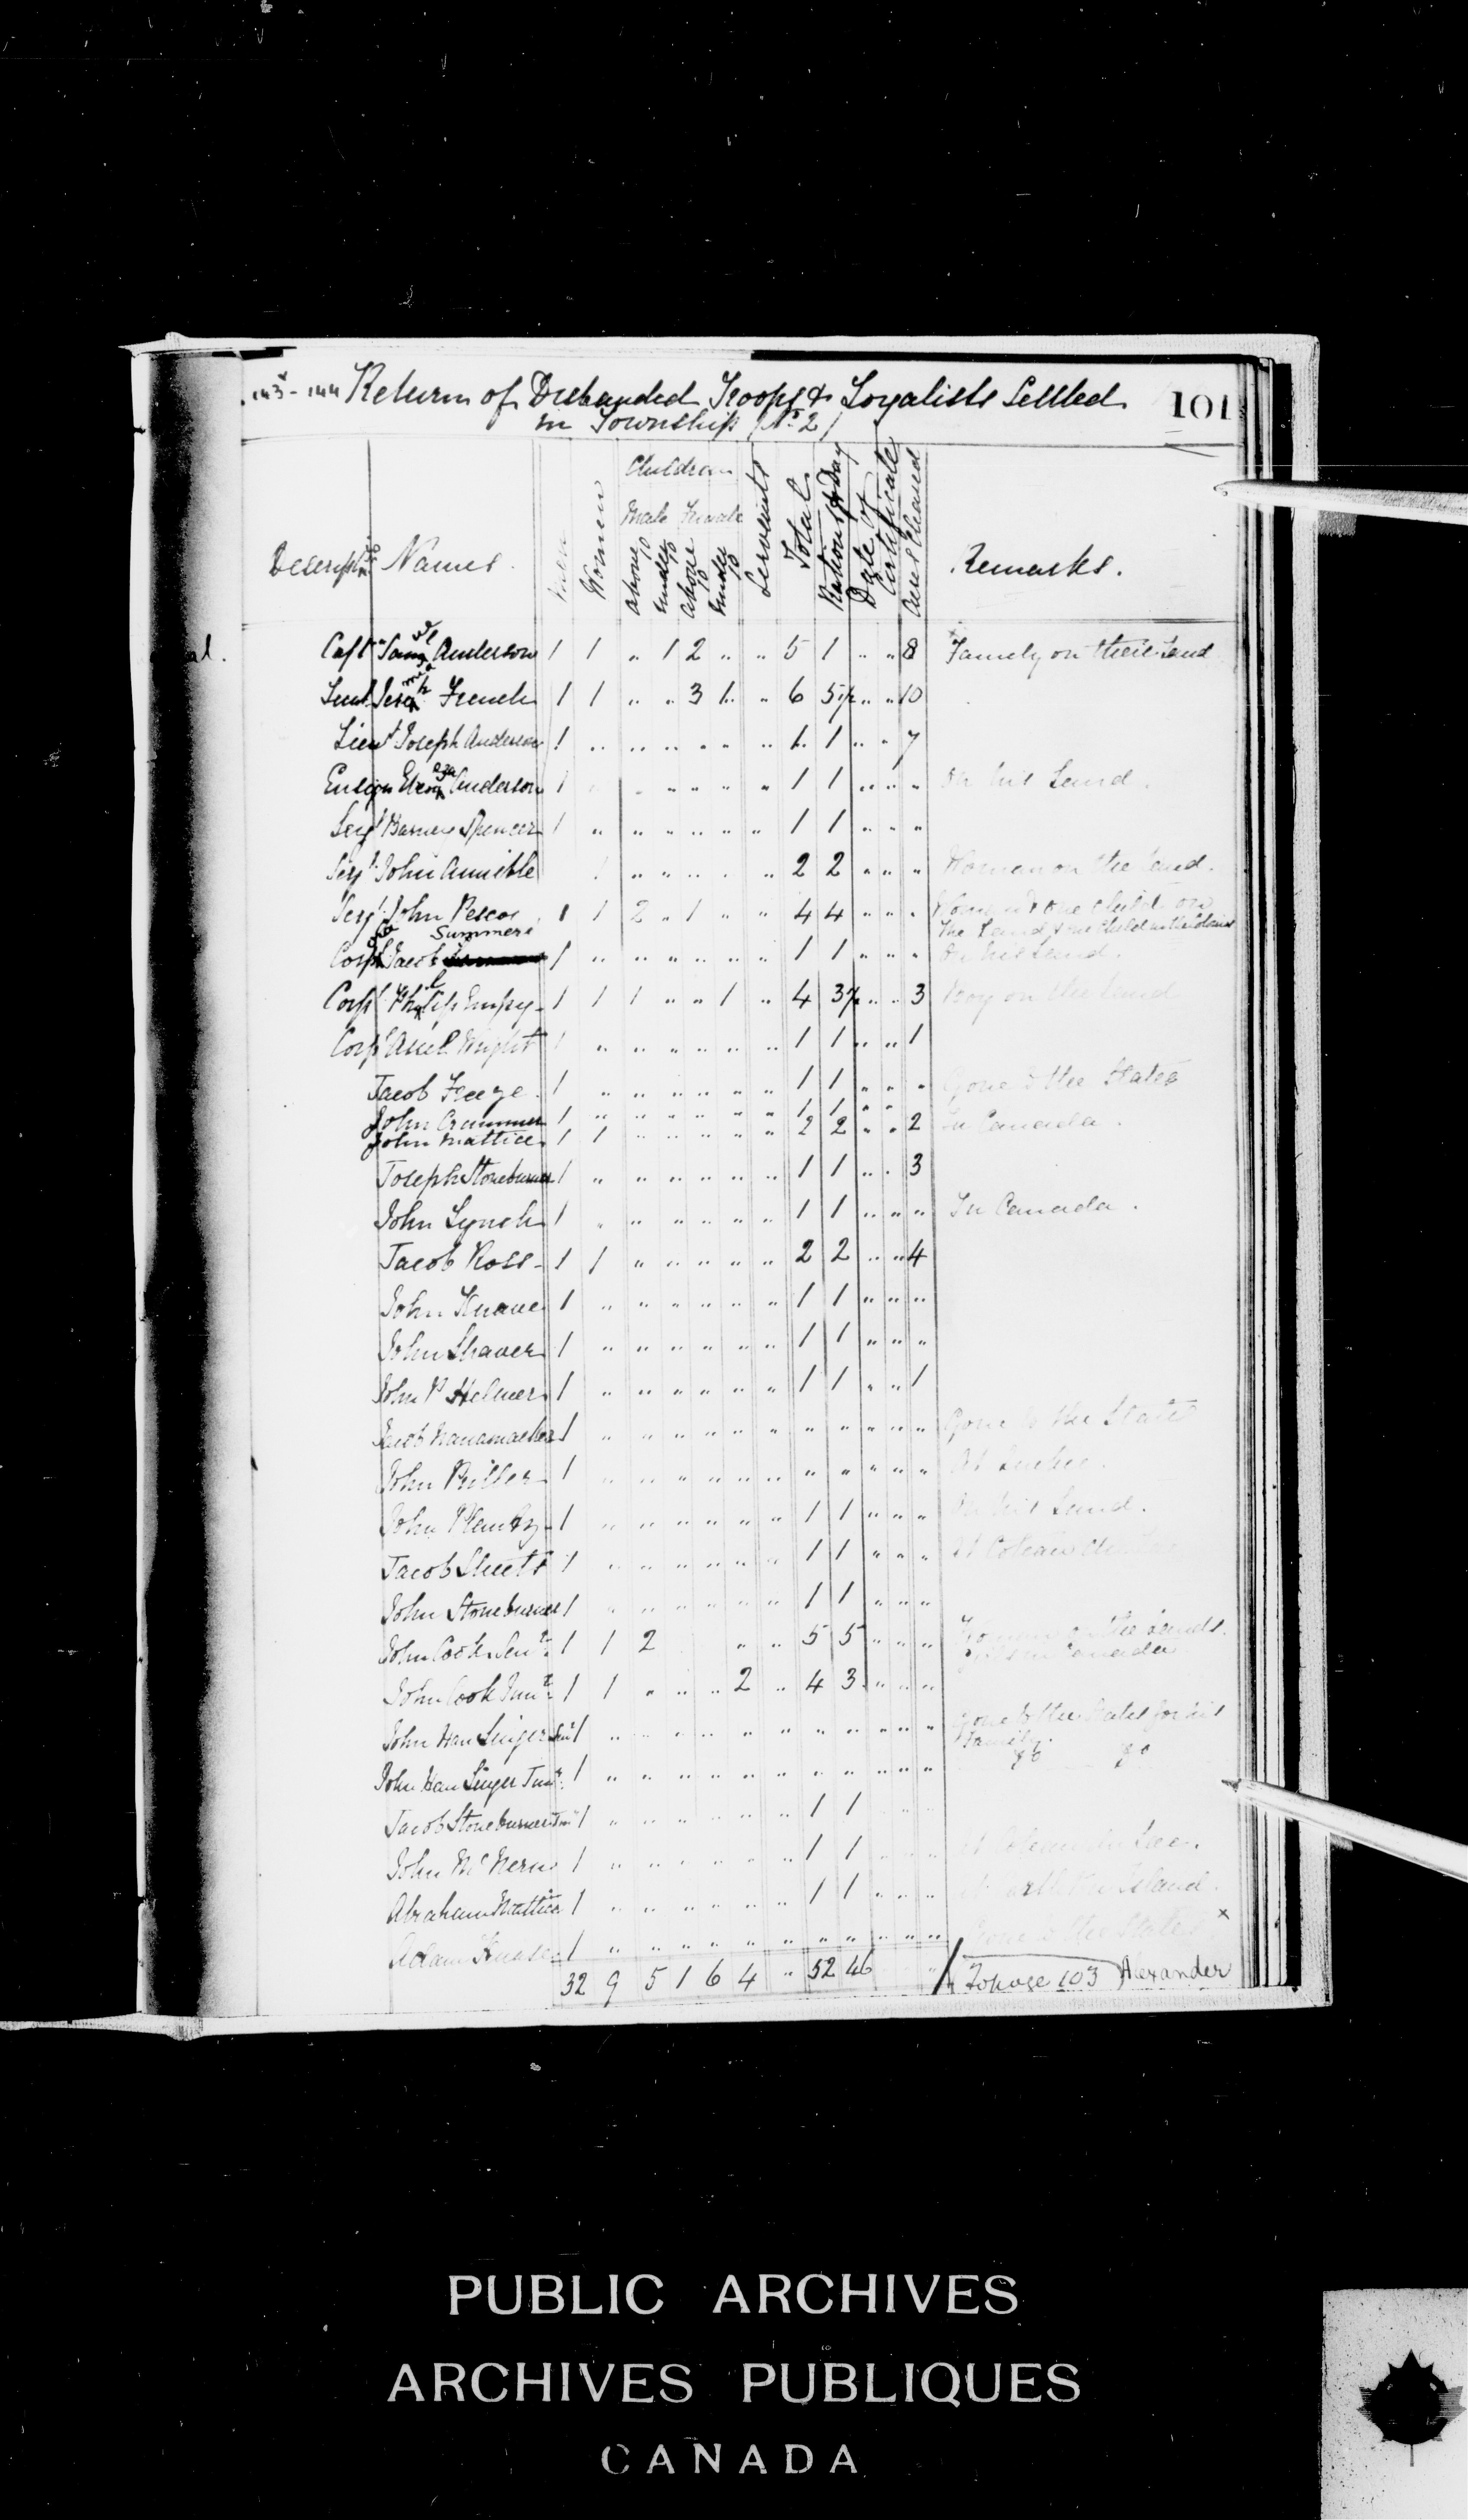 143-144 Return of Disbanded Troops & Loyalists Settled 101
in Township No 2
Descript Names Men Women Children Servants Total Rations pr Day Date of Certificate Acres Cleared Remarks.
Male Female
above 10 under 10 above 10 under 10
al.
Capt Saml Anderson 1 1 " 1 2 " " 5 1 " " 8 Family on their Land
Lieut Jeremh French 1 1 " " 3 1 " 6 5½ " " 10
Lieut Joseph Anderson 1 " " " " " " 1 1 " " 7
Ensign Anderson 1 " " " " " 1 1 " " " On his Land.
Sergt Barney Spencer 1 " " " " " " 1 1 " " "
Sergt John Annible 1 " " " " " 2 2 " " " Woman on the Land.
Sergt John Pescos 1 1 2 " 1 " " 4 4 " " " Woman & one child on
the Land & one child
Summers
Corpl Jacob 1 " " " " " " 1 1 " " " On his Land.
Corpl Philip Empy 1 1 1 " " 1 " 4 3½ " " 3 Boy on the Land
Corpl Asael Wright 1 " " " " " " 1 1 " " 1
Jacob Feeze 1 " " " " " " 1 1 " " " Gone to the States
John Crummer 1 " " " " " " 1 1 " "
John Mattice 1 1 " " " " " 2 2 " " 2 In Canada.
Joseph Stoneburner 1 " " " " " " 1 1 " " 3
John Lynch 1 " " " " " " 1 1 " " " In Canada.
Jacob Ross 1 1 " " " " " 2 2 " " 4
John Knave 1 " " " " " " 1 1 " " "
John Shaver 1 " " " " " " 1 1 " " "
John P Helmer 1 " " " " " " 1 1 " " 1
Jacob 1 " " " " " " " " " " " Gone to the States
John 1 " " " " " " " " " " " At Quebec.
John Plantz 1 " " " " " " 1 1 " " " On his Land.
Jacob Sheets 1 " " " " " " 1 1 " " " at Coteau du Lac
John Stoneburner 1 " " " " " " 1 1 " " "
John Cook Senr 1 1 2 " " 5 5 " " " Woman on the Lands.
Girls in Canada
John Cook Junr 1 1 " " " 2 " 4 3 " " "
John Hau Singer Senr 1 " " " " " " " " " " " Gone to the States for his
Family.
John Hau Singer Junr 1 " " " " " " " " " " " Do Do
Jacob Stoneburner Junr 1 " " " " " " 1 1 " "
John Mc Nern 1 " " " " " " 1 1 " " " at Coteau du Lac.
Abraham Mattice 1 " " " " " " 1 1 " " " Island.
Adam 1 " " " " " " " " " " " Gone to the States x
32 9 5 1 6 4 " 52 46 " To page 103 Alexander
PUBLIC ARCHIVES
ARCHIVES PUBLIQUES
CANADA